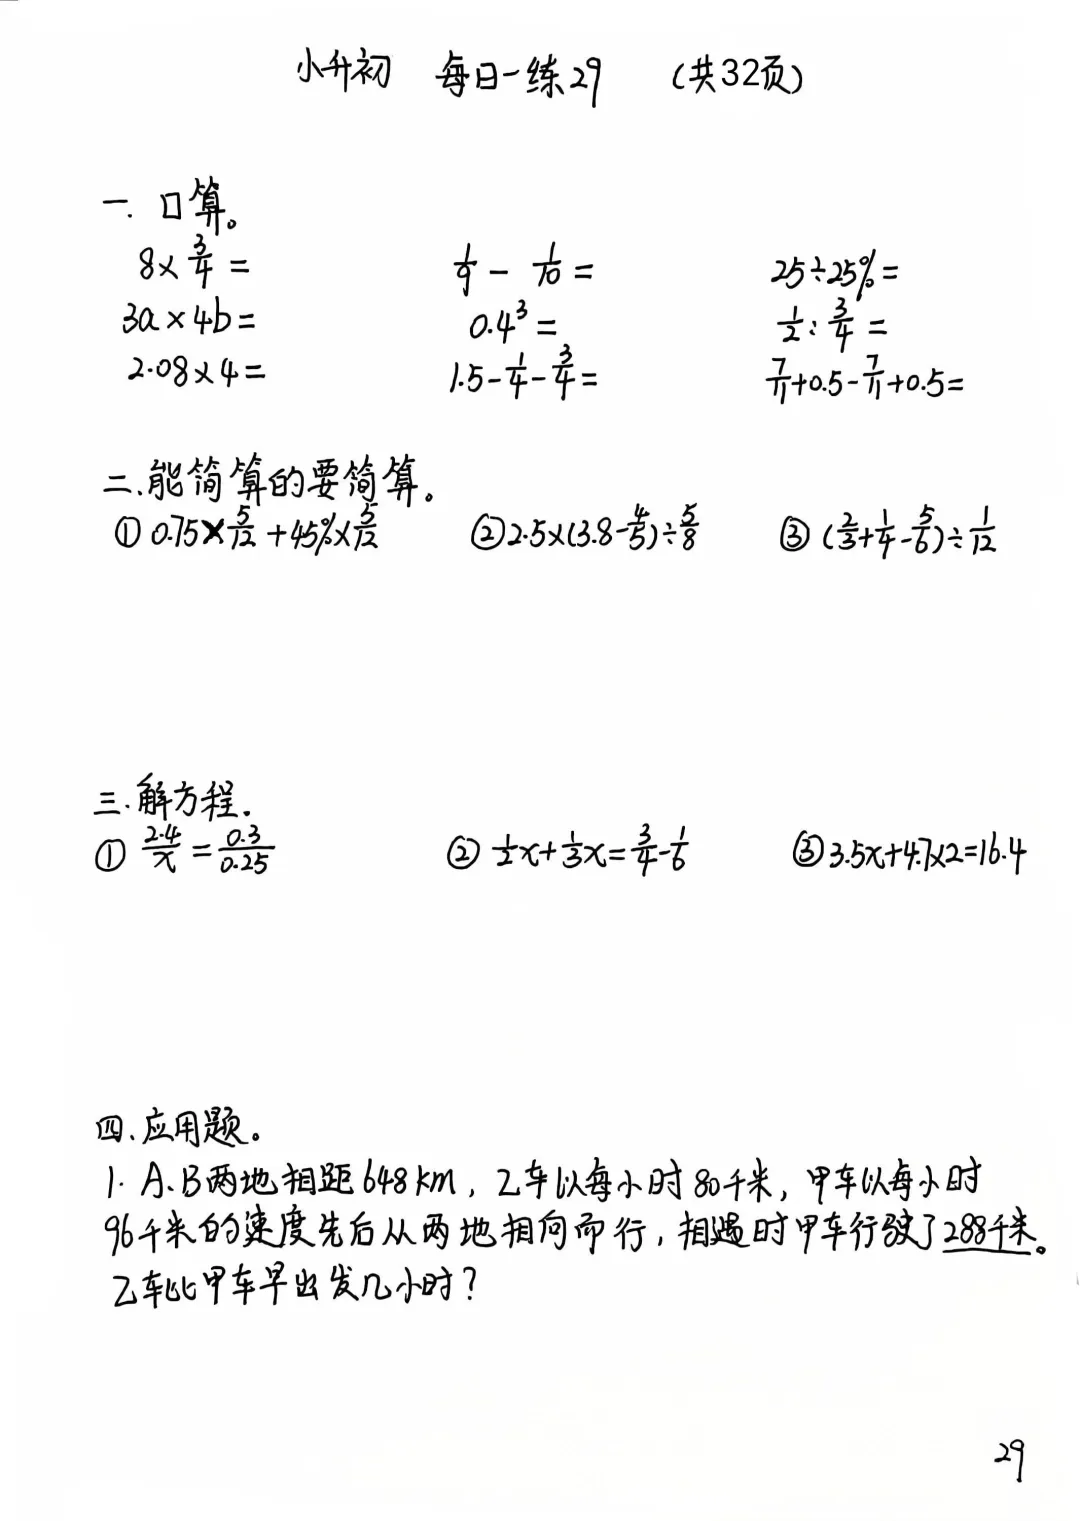 小升初 每日一练29 (共32页)
一. 口算。
8×3/4= 1/9-1/10= 25÷25%=
3a×4b= 0.4³= 1/2:3/4=
2.08×4= 1.5-1/4-3/4= 7/11+0.5-7/11+0.5=
二.能简算的要简算。
① 0.75×5/12+45%×5/12 ②2.5×(3.8-4/5)÷5/8 ③ (2/3+1/4-5/6)÷1/12
三.解方程.
① 2.4/x=0.3/0.25 ② 1/2x+1/3x=3/4-1/6 ③3.5x+4.7×2=16.4
四.应用题。
1. A、B两地相距648km,乙车以每小时80千米,甲车以每小时
96千米的速度先后从两地相向而行,相遇时甲车行驶了288千米。
乙车比甲车早出发几小时?
29